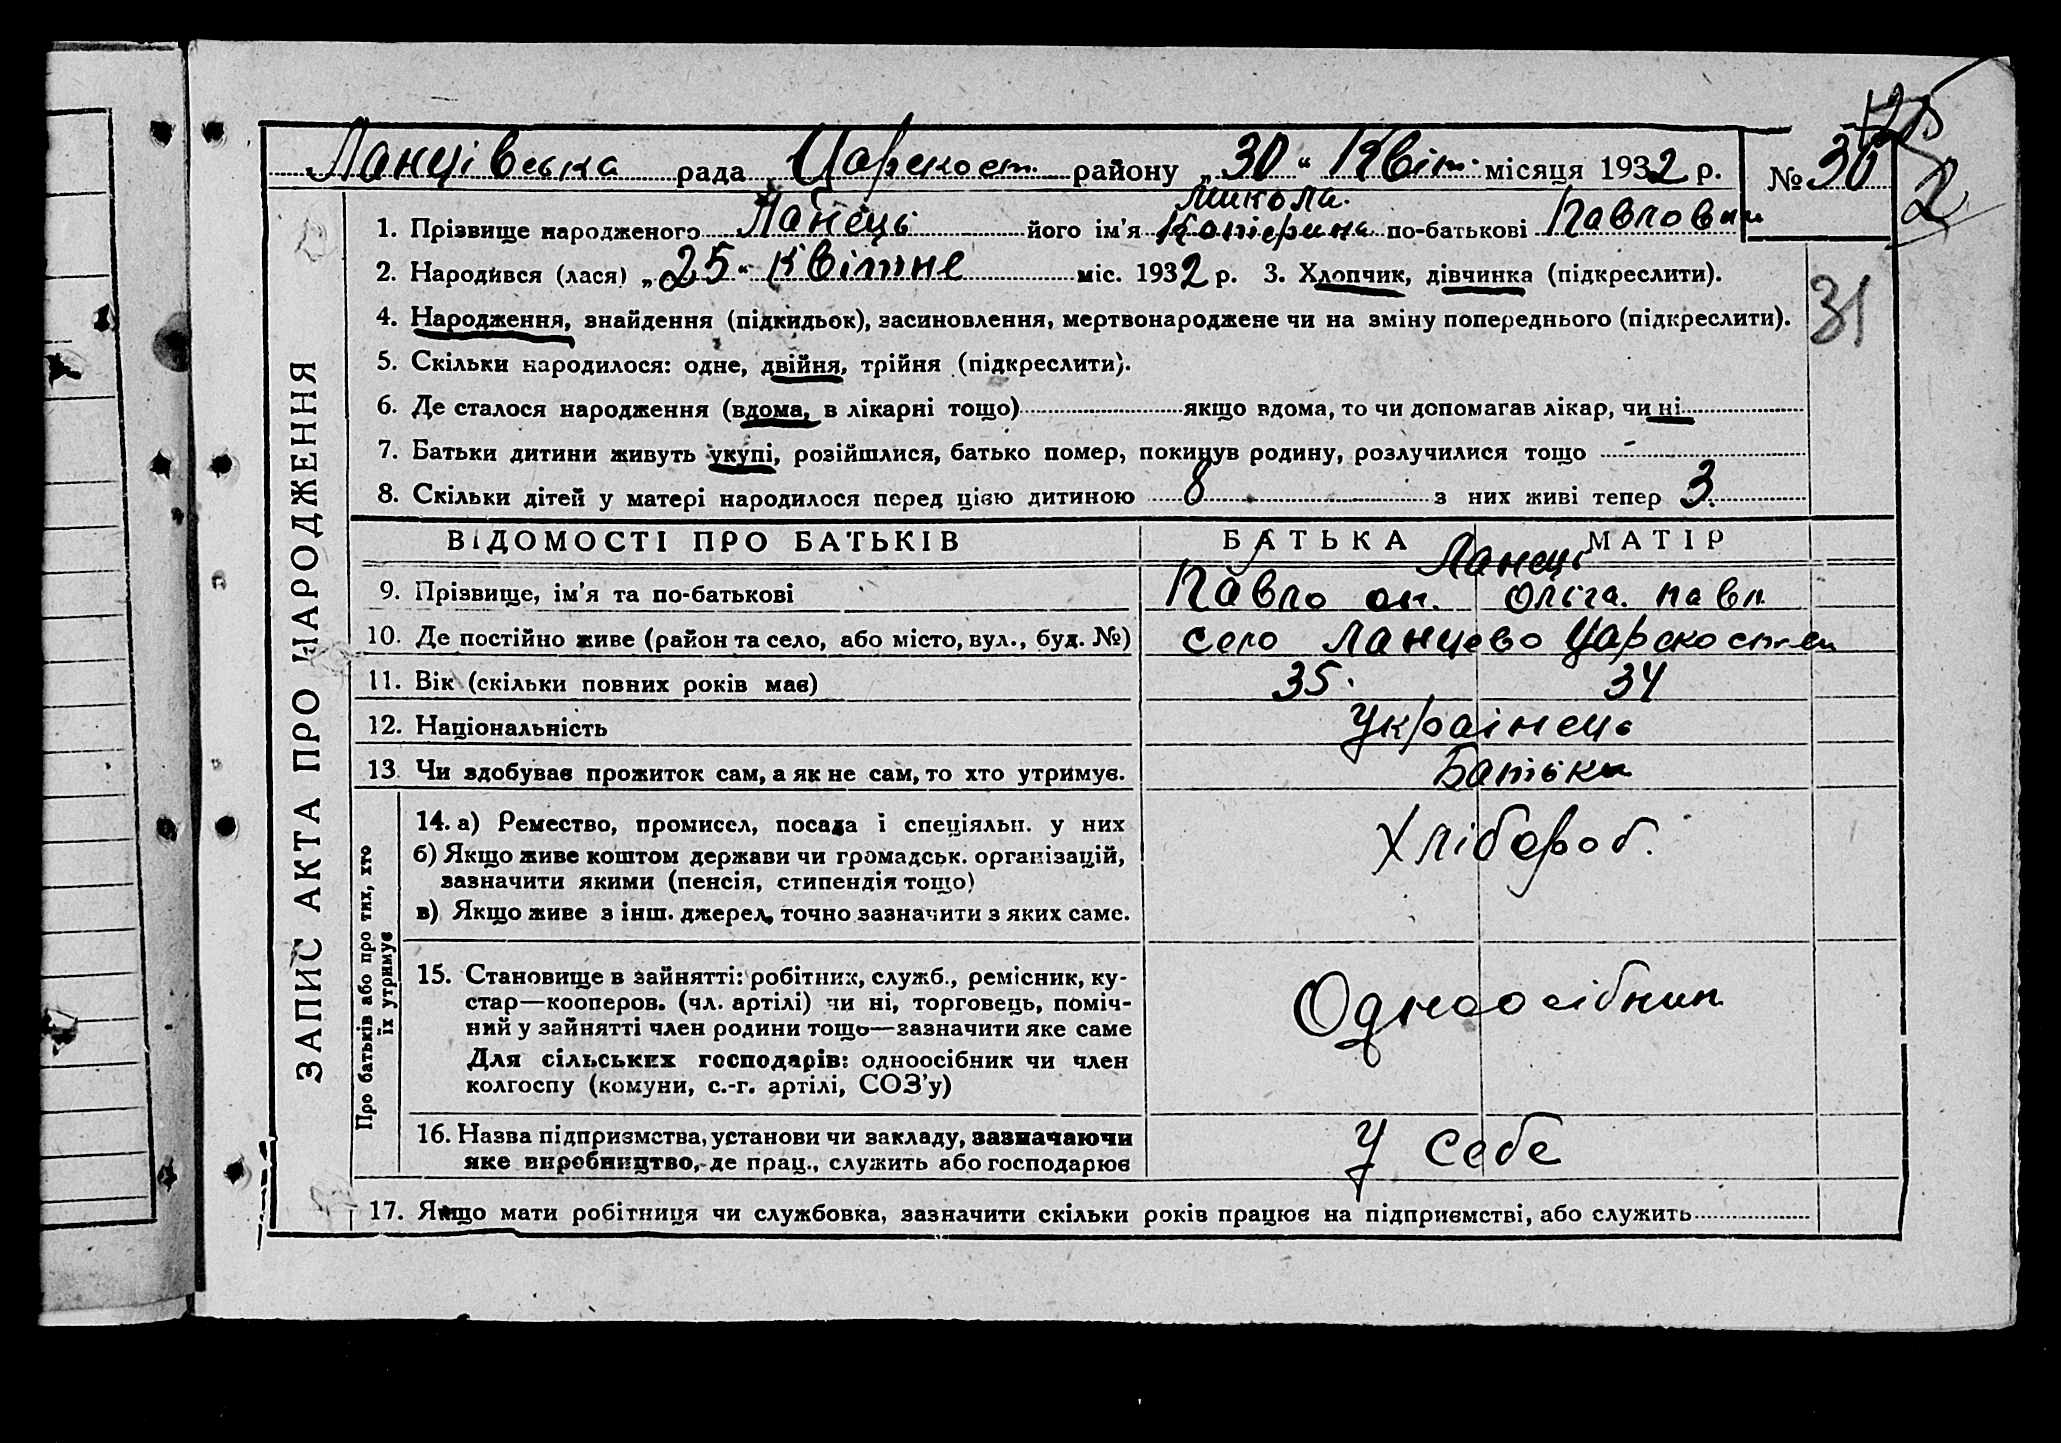 Ланцівська рада Царскост. району „30“ Квіт. місяця 1932 р. № 30
2
Микола.
1. Прізвище народженого Ланець його ім'я Катерина по-батькові Павлович
2. Народився (лася) „25“ Квітне міс. 1932 р. 3. Хлопчик, дівчинка (підкреслити).
31
4. Народження, знайдення (підкидьок), засиновлення, мертвонароджене чи на зміну попереднього (підкреслити).
5. Скільки народилося: одне, двійня, трійня (підкреслити).
6. Де сталося народження (вдома, в лікарні тощо) якщо вдома, то чи допомагав лікар, чи ні
7. Батьки дитини живуть укупі, розійшлися, батько помер, покинув родину, розлучилися тощо -
8. Скільки дітей у матері народилося перед цією дитиною 8 з них живі тепер 3.
ЗАПИС АКТА ПРО НАРОДЖЕННЯ
ВІДОМОСТІ ПРО БАТЬКІВ БАТЬКА МАТІР
Ланець
9. Прізвище, ім'я та по-батькові Павло Ольга. Павл.
10. Де постійно живе (район та село, або місто, вул., буд. №) село Ланцево
11. Вік (скільки повних років має) 35. 34
12. Національність Українець
13. Чи здобував прожиток сам, а як не сам, то хто утримує. Батьки
Про батьків або про тих, хто
їх утримує
14. а) Ремество, промисел, посада і спеціяльн. у них Хлібороб.
б) Якщо живе коштом держави чи громадськ. організацій,
зазначити якими (пенсія, стипендія тощо)
в) Якщо живе з інш. джерел, точно зазначити з яких саме.
15. Становище в зайнятті: робітник, служб., ремісник, ку-
стар—кооперов. (чл. артілі) чи ні, торговець, поміч-
ний у зайнятті член родини тощо—зазначити яке саме
Одноосібник
Для сільських господарів: одноосібник чи член
колгоспу (комуни, с.-г. артілі, СОЗ'у)
16. Назва підприємства, установи чи закладу, зазначаючи
яке виробництво, де прац., служить або господарює
У себе
17. Якщо мати робітниця чи службовка, зазначити скільки років працює на підприємстві, або служить